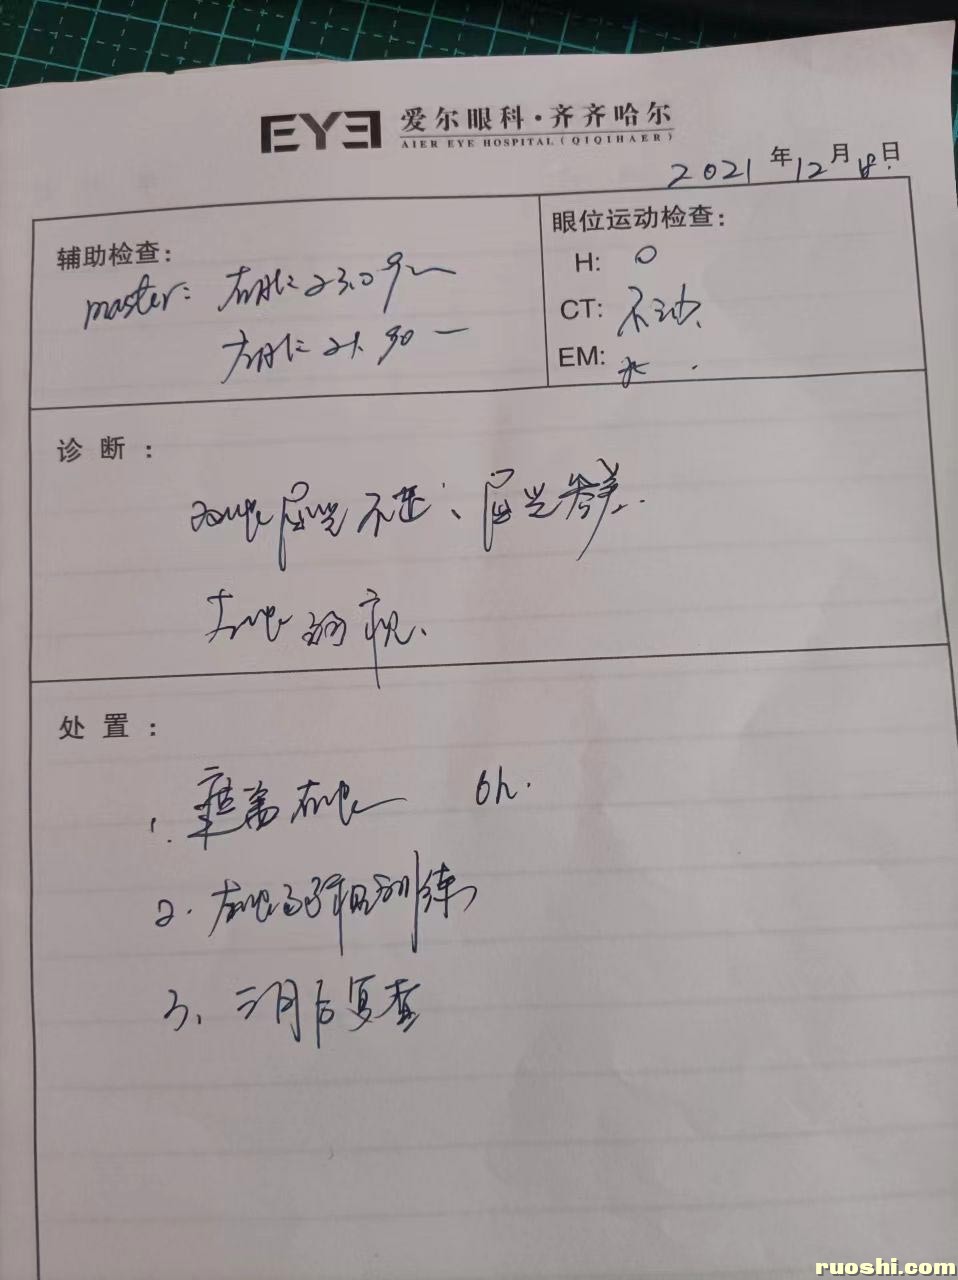 EYE 爱尔眼科·齐齐哈尔
AIER EYE HOSPITAL (QIQIHAER)
2021年12月18日
辅助检查:
master: 右眼 23.09
左眼 21.90
眼位运动检查:
H: 0
CT: 不动
EM:
诊断:
双眼屈光不正、屈光参差.
左眼弱视.
处置:
1. 遮盖右眼 6h.
2. 左眼弱视训练
3. 三月后复查
ruoshi.com